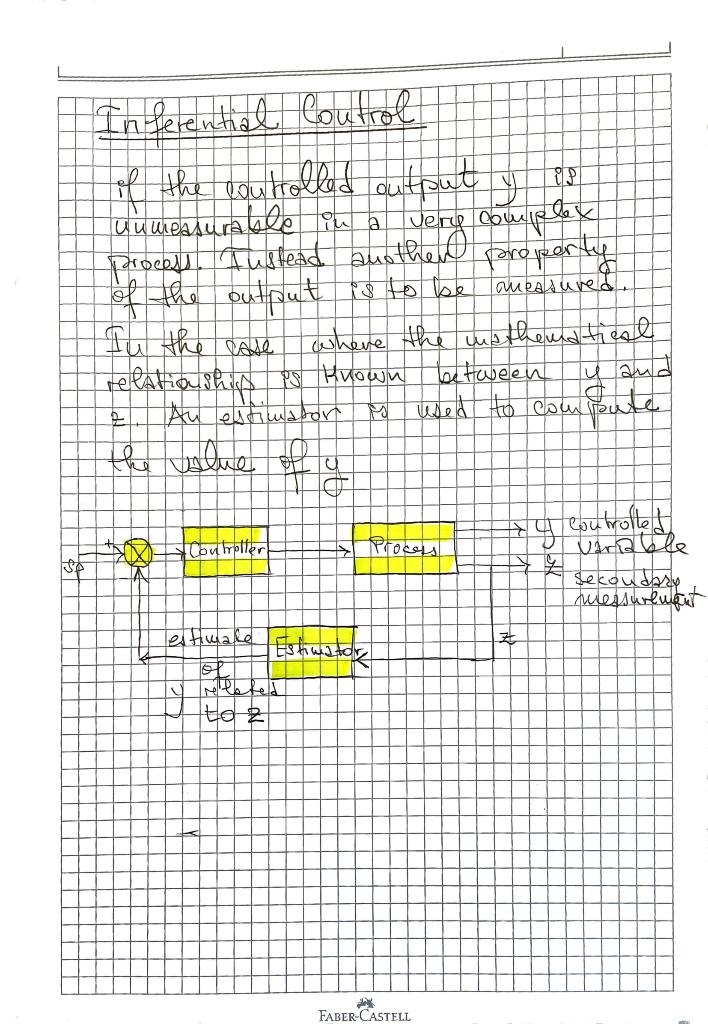 Inferential Control
if the controlled output y is
unmeasurable in a very complex
process. Instead another property
of the output is to be measured.
In the case where the mathematical
relationship is known between y and
z. An estimator is used to compute
the value of y
+
y controlled
variable
Controller
Process
sp
z secondary
measurement
-
estimate
Estimator
z
of
y related
to z
FABER-CASTELL